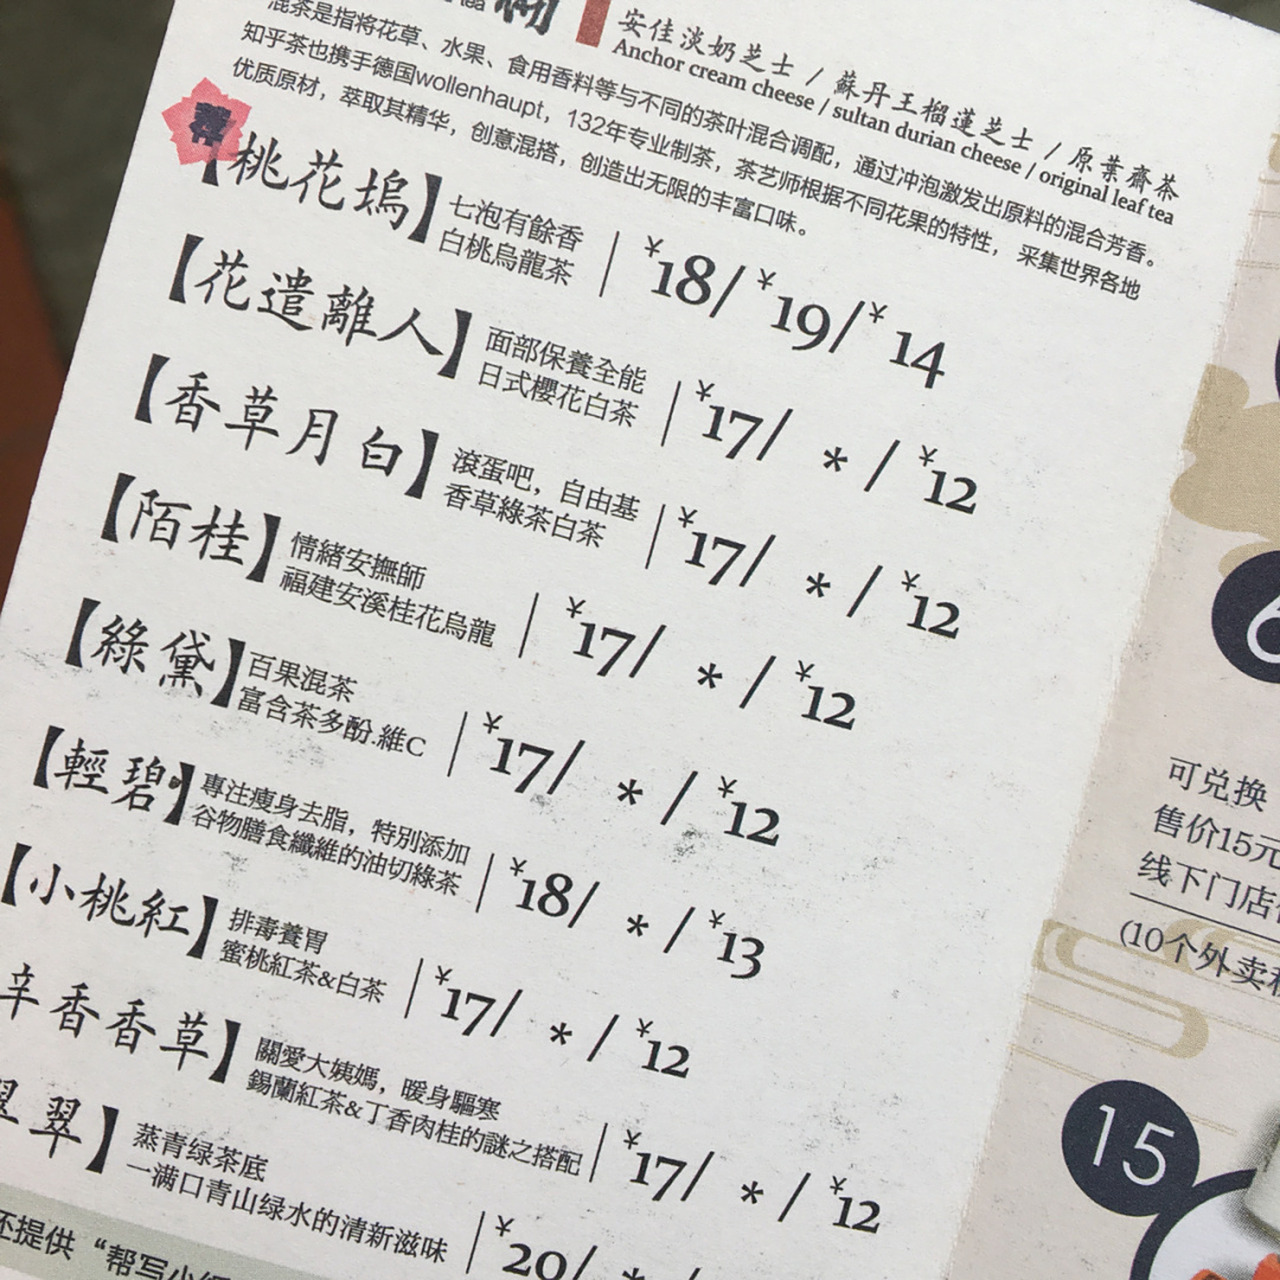 安佳淡奶芝士 / 蘇丹王榴蓮芝士 / 原葉齋茶
Anchor cream cheese / sultan durian cheese / original leaf tea
混茶是指将花草、水果、食用香料等与不同的茶叶混合调配，通过冲泡激发出原料的混合芳香。
知乎茶也携手德国wollenhaupt，132年专业制茶，茶艺师根据不同花果的特性，采集世界各地
优质原材，萃取其精华，创意混搭，创造出无限的丰富口味。
【桃花塢】
七泡有餘香
白桃烏龍茶
¥18/ ¥19/ ¥14
【花遣離人】
面部保養全能
日式櫻花白茶
¥17/ * / ¥12
【香草月白】
滾蛋吧，自由基
香草綠茶白茶
¥17/ * / ¥12
【陌桂】
情緒安撫師
福建安溪桂花烏龍
¥17/ * / ¥12
【綠黛】
百果混茶
富含茶多酚.維C
¥17/ * / ¥12
【輕碧】
專注瘦身去脂，特別添加
谷物膳食纖維的油切綠茶
¥18/ * / ¥13
【小桃紅】
排毒養胃
蜜桃紅茶&白茶
¥17/ * / ¥12
辛香香草】
關愛大姨媽，暖身驅寒
錫蘭紅茶&丁香肉桂的謎之搭配
¥17/ * / ¥12
翠】
蒸青绿茶底
一满口青山绿水的清新滋味
¥20/ *
还提供“帮写小
6
可兑换
售价15元
线下门店
(10个外卖
15